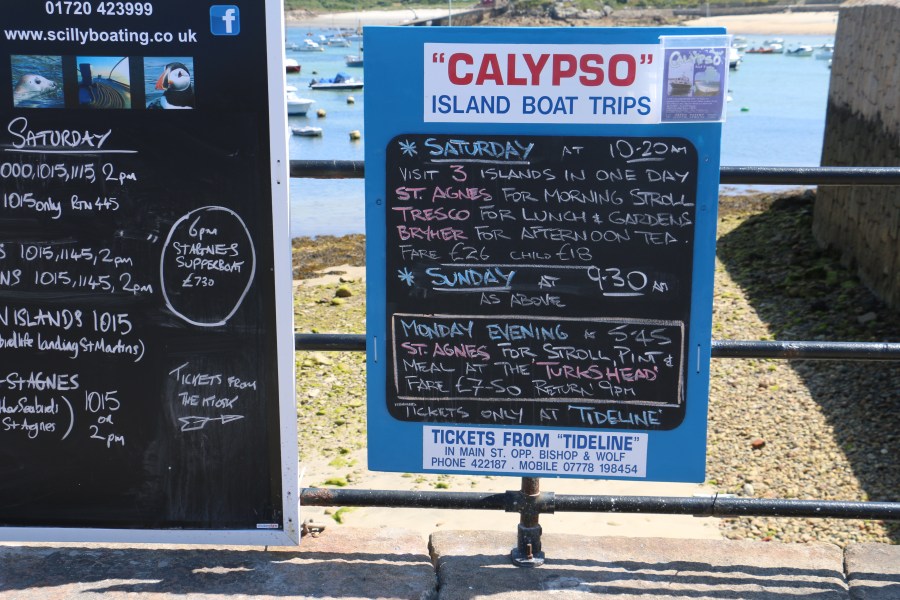 01720 423999
www.scillyboating.co.uk
f
SATURDAY
000, 1015, 1115, 2pm
1015 only RTN 445
S 1015, 1145, 2pm
NS 1015, 1145, 2pm
N ISLANDS 1015
landing St Martins)
StAGNES
St Agnes)
1015
OR
2pm
6pm
STAGNES
SUPPERBOAT
£730
TICKETS FROM
THE KIOSK
"CALYPSO"
ISLAND BOAT TRIPS
CALYPSO
* SATURDAY AT 10-20 AM
VISIT 3 ISLANDS IN ONE DAY
ST. AGNES FOR MORNING STROLL
TRESCO FOR LUNCH & GARDENS
BRYHER FOR AFTERNOON TEA.
FARE £26 CHILD £18
* SUNDAY AT 9.30 AM
AS ABOVE
MONDAY EVENING 5.45
ST. AGNES FOR STROLL, PINT &
MEAL AT THE 'TURKS HEAD'
FARE £7-50 RETURN 9PM
TICKETS ONLY AT 'TIDELINE'
TICKETS FROM "TIDELINE"
IN MAIN ST. OPP. BISHOP & WOLF
PHONE 422187 . MOBILE 07778 198454